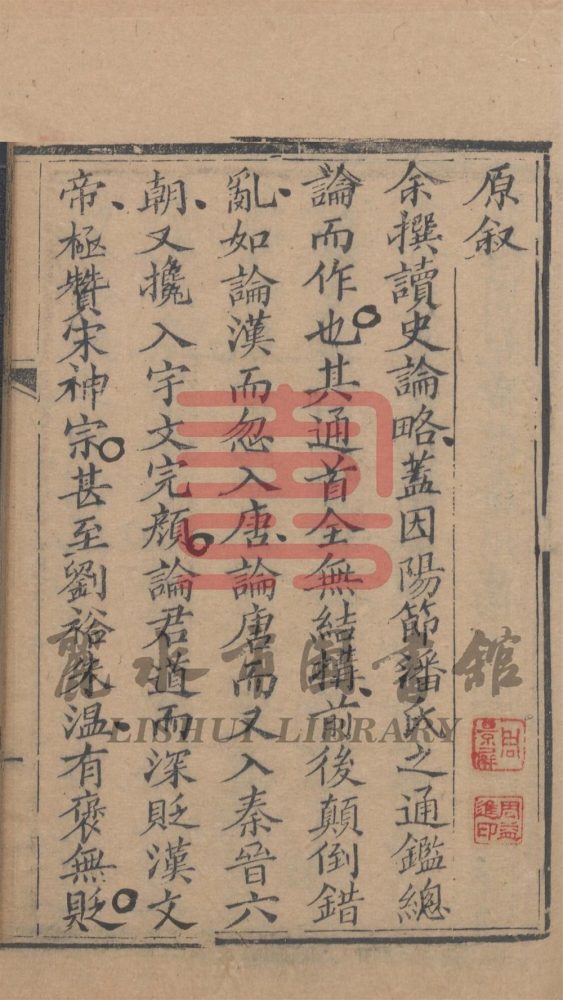 原叙
余撰讀史論略蓋因陽節潘氏之通鑑總
論而作也其通首全無結構前後顛倒錯
亂如論漢而忽入唐論唐而又入秦晉六
朝又攙入宇文完顔論君道而深貶漢文
帝極贊宋神宗甚至劉裕朱温有褒無貶
麗水市圖書館
LISHUI LIBRARY
周益
進印